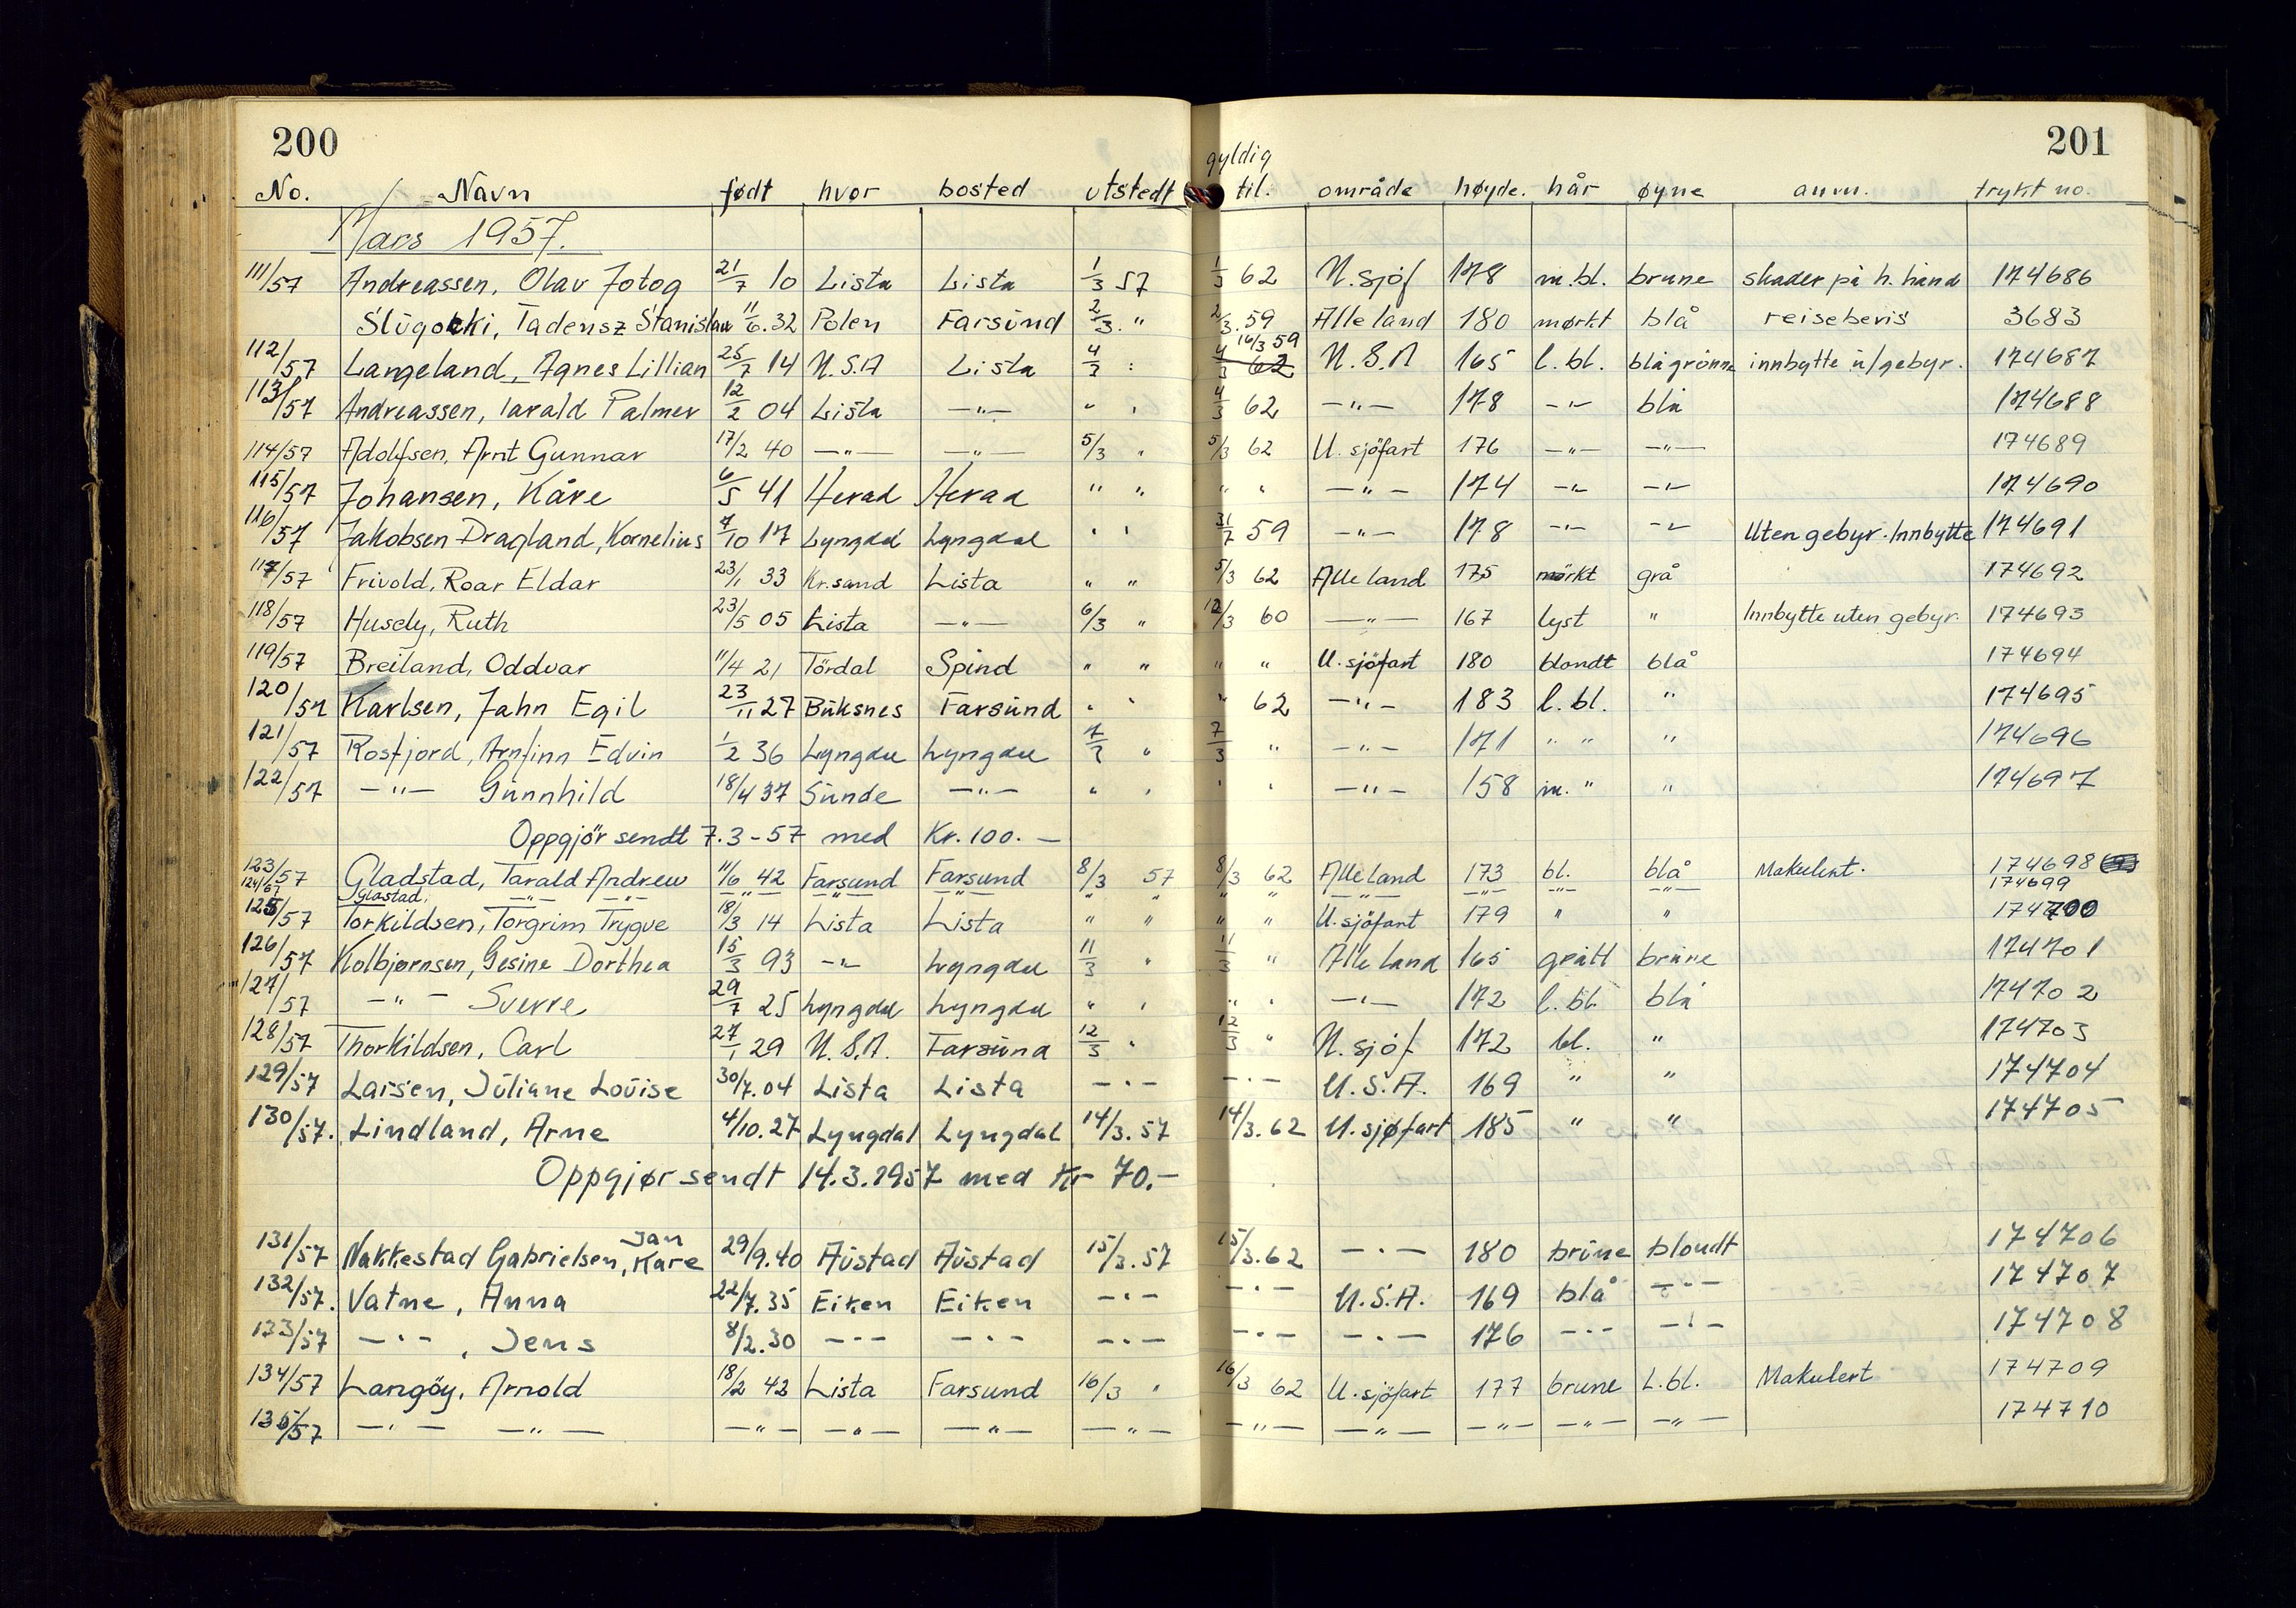 200
201
No. Navn født hvor bosted utstedt gyldig til. område høyde. hår øyne anm. trykt no.
Mars 1957.
111/57 Andreassen, Olav Fotog 21/7 10 Lista Lista 1/3 57 1/3 62 U.sjöf 178 m.bl. brune skader på h. hånd 174686
Slugocki, Tadeusz Stanislaw 11/6.32 Polen Farsund 2/3. " 2/3.59 Alle land 180 mørkt blå reisebevis 3683
112/57 Langeland, Agnes Lillian 25/7 14 U.S.A Lista 4/3 : 4/3 62 16/3 59 U.S.A 165 l.bl. blågrönne innbytte u/gebyr. 174687
113/57 Andreassen, Tarald Palmer 12/2 04 Lista —"— " " 4/3 62 —"— 178 —"— blå 174688
114/57 Adolfsen, Arnt Gunnar 17/2 40 —"— —"— 5/3 " 5/3 62 U. sjöfart 176 —"— —"— 174689
115/57 Johansen, Kåre 6/5 41 Herad Herad " " " " —"— 174 —"— —"— 174690
116/57 Jakobsen Dragland, Kornelius 7/10 17 Lyngdal Lyngdal " " 31/7 59 —"— 178 —"— —"— Uten gebyr. Innbytte 174691
117/57 Frivold, Roar Eldar 23/1 33 Kr.sand Lista " " 5/3 62 Alle land 175 mörkt grå 174692
118/57 Huseby, Ruth 23/5 05 Lista —"— 6/3 " 12/3 60 —"— 167 lyst " Innbytte uten gebyr. 174693
119/57 Breiland, Oddvar 11/4 21 Tördal Spind " " " " U.sjöfart 180 blondt blå 174694
120/57 Karlsen, Jahn Egil 23/11 27 Buksnes Farsund " " " 62 —"— 183 l.bl. " 174695
121/57 Rosfjord, Arnfinn Edvin 1/2 36 Lyngdal Lyngdal 7/3 " 7/3 " —"— 171 " " " 174696
122/57 —"— Gunnhild 18/4 37 Sunde —"— " " " " —"— 158 m. " " 174697
Oppgjör sendt 7.3-57 med Kr. 100. —
123/57 Gladstad, Tarald Andrew 11/6 42 Farsund Farsund 8/3 57 8/3 62 Alle land 173 bl. blå Makulert. 174698
124/57 Glastad, —"— —"— —"— —"— —"— " " " " —"— —"— —"— —"— 174699
125/57 Torkildsen, Torgrim Trygve 18/3 14 Lista Lista " " " " U.sjöfart 179 " " 174700
126/57 Kolbjørnsen, Gesine Dorthea 15/3 93 —"— Lyngdal 11/3 " 11/3 " Alle land 165 grått brune 174701
127/57 —"— Sverre 29/7 25 Lyngdal Lyngdal " " " " —"— 172 l.bl. blå 174702
128/57 Thorkildsen, Carl 27/1 29 U.S.A. Farsund 12/3 " 12/3 " U.sjöf 172 bl. " 174703
129/57 Larsen, Juliane Louise 30/7.04 Lista Lista —"— —"— U.S.A. 169 " " 174704
130/57. Lindland, Arne 4/10.27 Lyngdal Lyngdal 14/3.57 14/3.62 U.sjøfart 185 " " 174705
Oppgjør sendt 14.3.1957 med Kr 70.—
131/57 Nakkestad Gabrielsen, Jan Kåre 29/9.40 Austad Austad 15/3.57 15/3.62 —"— 180 brune blondt 174706
132/57. Vatne, Anna 22/7.35 Eiken Eiken —"— —"— U.S.A. 169 blå —"— 174707
133/57 —"—, Jens 8/2.30 —"— —"— —"— —"— —"— 176 —"— —"— 174708
134/57 Langöy, Arnold 18/2 42 Lista Farsund 16/3 " 16/3 62 U.sjöfart 177 brune L.bl. Makulert 174709
135/57 —"— —"— —"— —"— —"— —"— —"— —"— —"— —"— —"— 174710